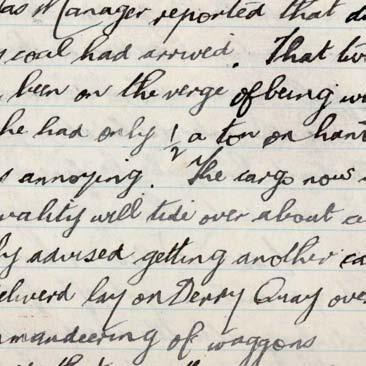 Gas Manager reported that
coal had arrived. That
been on the verge of being
he had only ½ a ton on
annoying. The cargo now
quality will tide over about a
advised getting another
deliverd lay on Derry Quay
commandeering of waggons